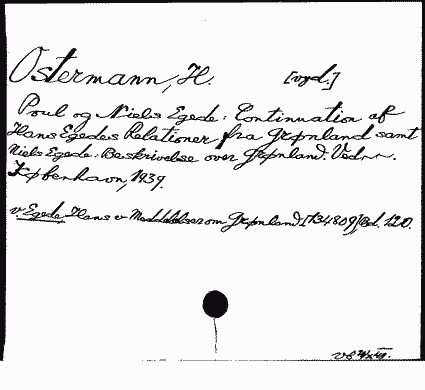 Ostermann, H. [vyd.]
Poul og Niels Egede: Continuation af
Hans Egedes Relationer fra Grønland samt
Niels Egede: Beskrivelse over Grønland. Ved
København, 1939.
v. Egede, Hans v Meddelelser om Grønland. [134809] Bd. 120.